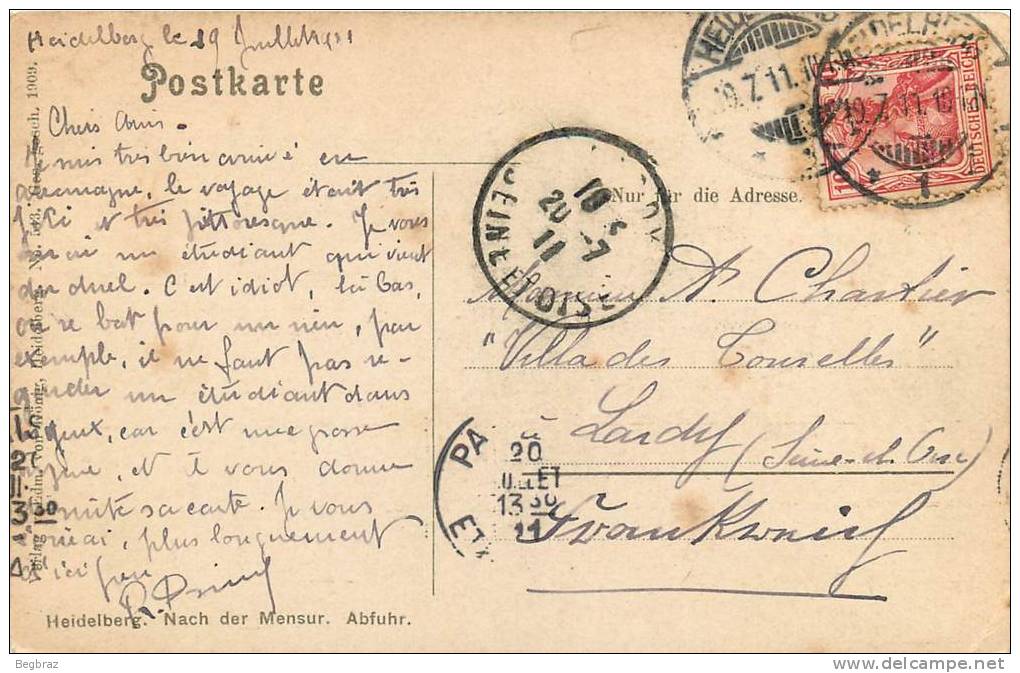 Heidelberg le 19 Juillet 1911
Postkarte
Chers Amis.
suis très bien arrivé en
allemagne, le voyage était très
et très pittoresque. Je vous
un étudiant qui vient
du duel. C'est idiot, là bas,
on se bat pour un rien, par
exemple, il ne faut pas re-
garder un étudiant dans
les yeux, car c'est une grosse
injure, et il vous donne
de suite sa carte. Je vous
plus longuement
d'ici peu.
Heidelberg. Nach der Mensur. Abfuhr.
Verlag Edm. von König, Heidelberg. No. 1909.
Nur für die Adresse.
Monsieur A. Chartier
"Villa des Tourelles"
à Lardy (Seine-et-Oise
Frankreich
HEIDELBERG
19.7.11.
HEIDELBERG
19.7.11.
* 1
DEUTSCHES REICH
10
SEINE ET OISE
20 -7
11
PA
20
JUILLET
13 30
11
Begbraz
www.delcampe.net